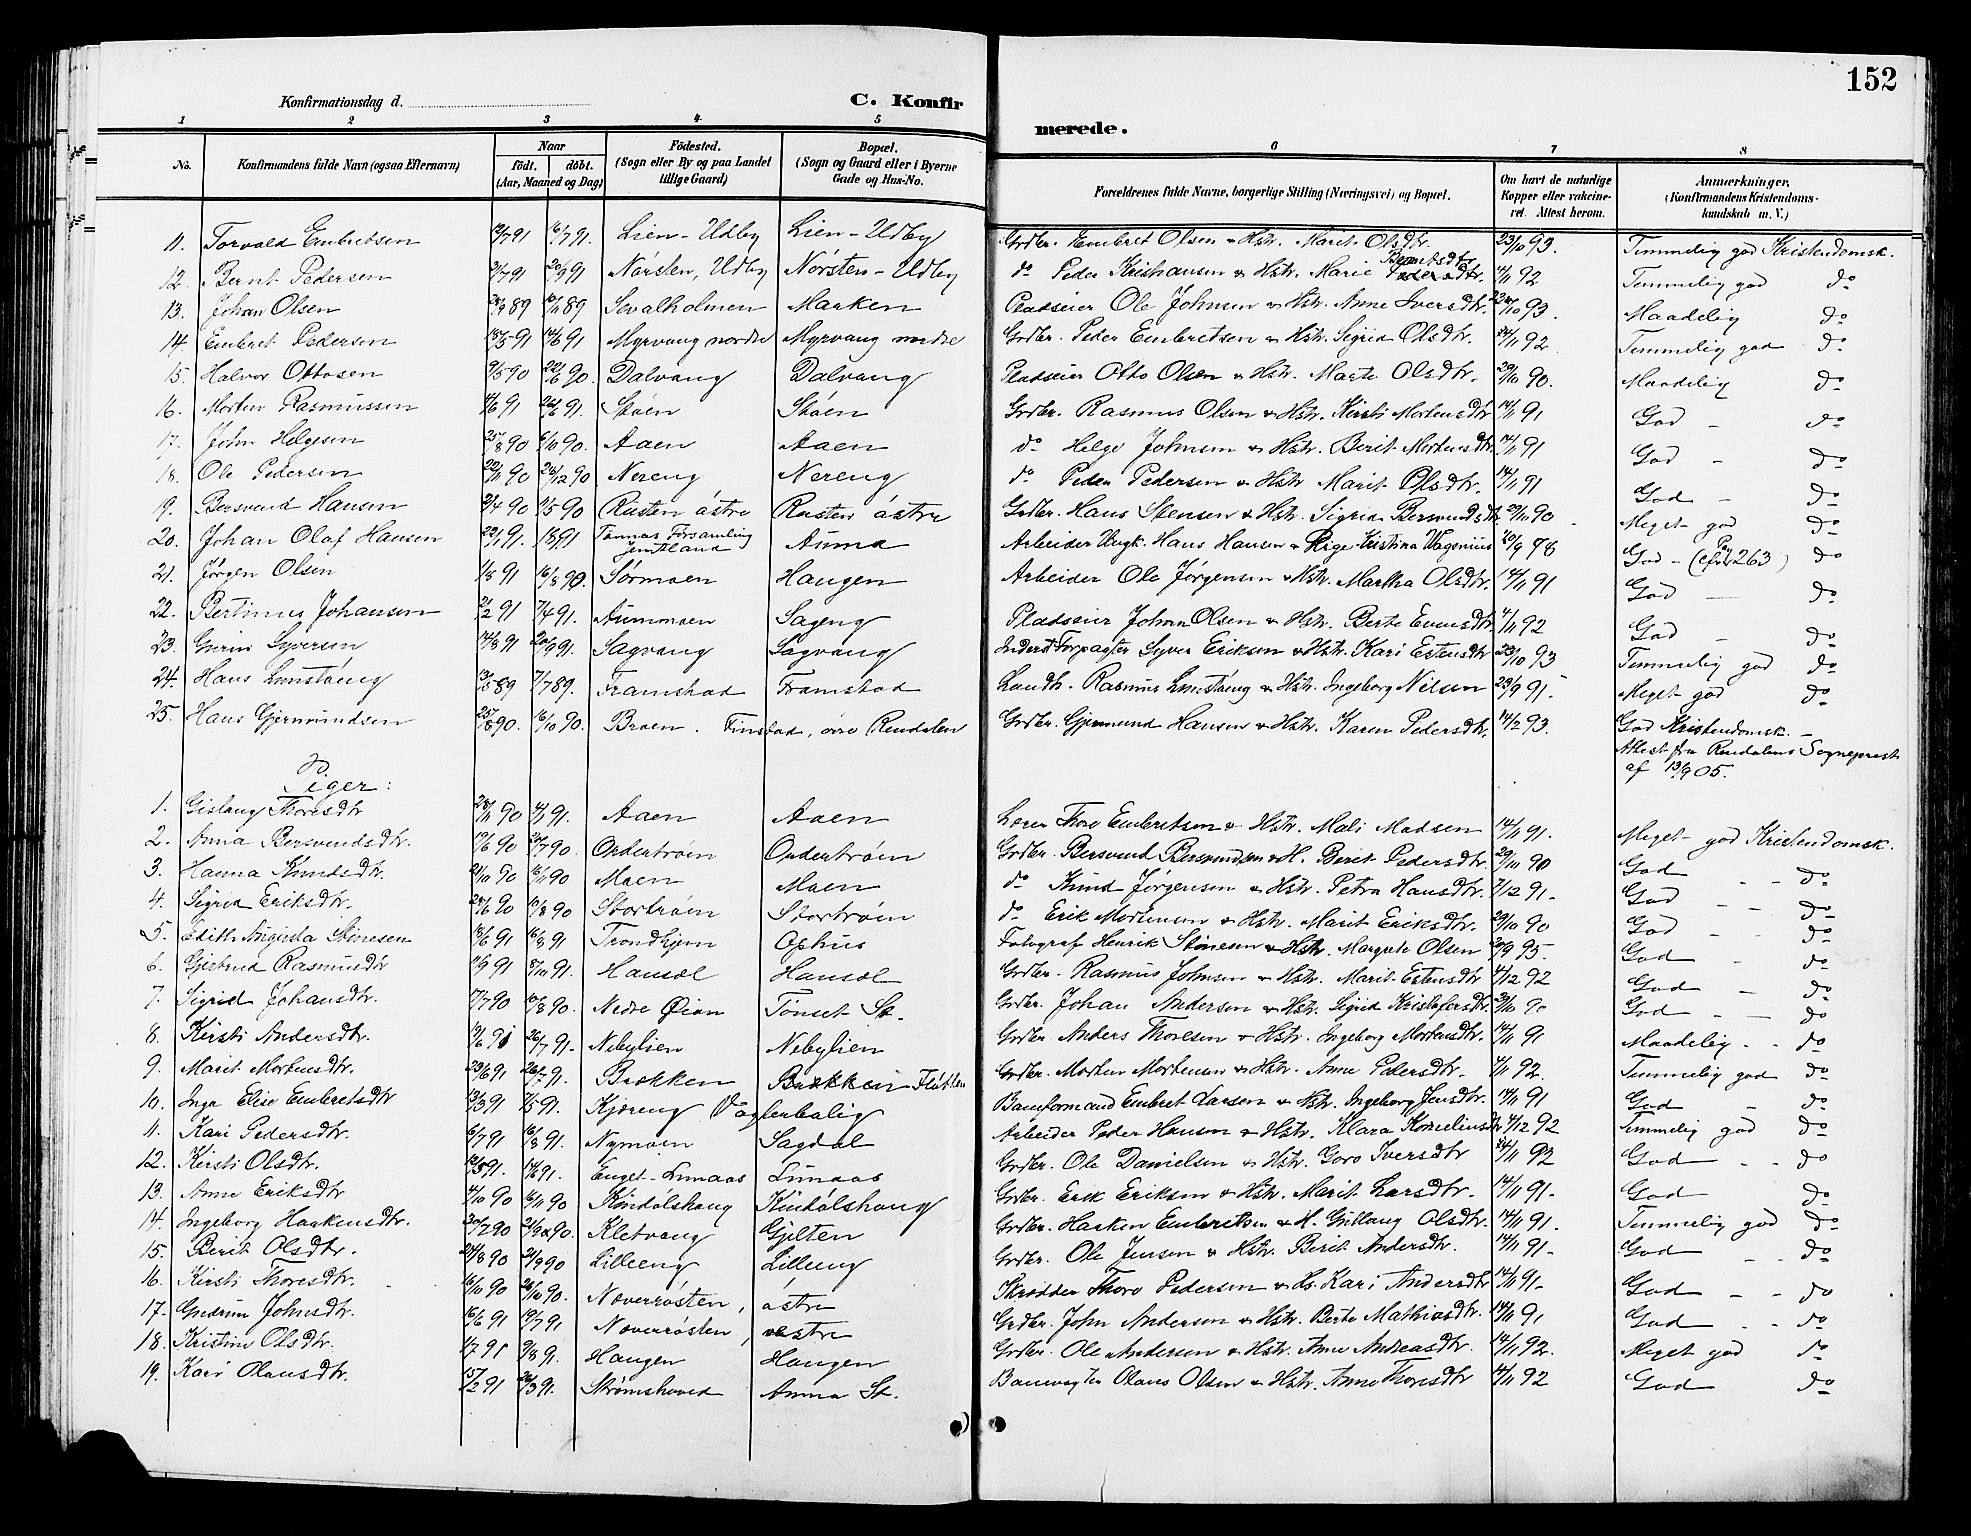 152
Konfirmationsdag d.
C. Konfir
merede.
1 2 3 4 5 6 7 8
No. Konfirmandens fulde Navn (ogsaa Efternavn) Naar födt. döbt. (Aar, Maaned og Dag) Födested. (Sogn eller By og paa Landet tillige Gaard) Bopæl. (Sogn og Gaard eller i Byerne Gade og Hus-No. Forældrenes fulde Navne, borgerlige Stilling (Næringsvei) og Bopæl. Om havt de naturlige Kopper eller vakcineret. Attest herom. Anmærkninger. (Konfirmandens Kristendomskundskab m. V.)
11. Torvald Embretsen 16/7 91. Lien - Udby Lien - Udby Grdbr. Embret Olsen & Hstr. Marit Olsdtr. 23/10 93. Temmelig god Kristendomsk.
12. Bernt Pedersen 20/9 91 Nörsten, Udby Nörsten - Udby do Peder Kristiansen & Hstr. Marie Berntsdtr. 4/11 92 Temmelig god do
13. Johan Olsen Svalholmen Marken Pladseier Ole Johnsen & Hstr. Anne Iversdtr. Maadelig do
14. Embret Pedersen 14/6 91 Myrvang nordre Myrvang nordre Grdbr. Peder Embretsen & Hstr. Sigrid Olsdtr. 92 Temmelig god do
15. Halvor Ottosen 9/5 90 22/6 90. Dalvang Dalvang Pladseier Otto Olsen & Hstr. Marte Olsdtr. 29/10 90. Maadelig do
16. Morten Rasmussen 4/6 91 Sköen Sköen Grdbr. Rasmus Olsen & Hstr. Kirsti Mortensdtr 14/11 91 God - do
17. John Helgesen 25/8 90 5/10 90. Aaen Aaen do Helge Johnsen & Hstr. Berit Mortensdtr. 14/11 91 God - do
18. Ole Pedersen 22/11 90 26/12 90 Nereng Nereng do Peder Pedersen & Hstr Marit Olsdtr. 14/11 91 God - do
19. Bersvend Hansen 2/4 90 11/5 90 Rusten östre Rusten östre Grdbr. Hans Stensen & Hstr. Sigrid Bersvendsdtr 29/10 90 Meget god do
20. Johan Olaf Hansen 22/1 91. 1891 Tännäs Församling Jemtland Auma Arbeider Ungk. Hans Hansen & Pige Kristina Vagenius 20/9 78 God - (cfr. Pg 263) do
21. Jörgen Olsen 1/8 91 16/8 90. Sörmoen Haugen Arbeider Ole Jörgensen & Hstr. Martha Olsdtr. 14/11 91 God do
22. Bertinus Johansen 2/2 91 7/4 91. Aummoen Sageng Pladseier Johan Olsen & Hstr. Berte Evensdtr. 4/11 92 God - do
23. Syversen 14/8 91 20/9 91. Sagvang Sagvang Inderst Forpagter Syver Eriksen & Hstr. Kari Estensdtr 23/10 93 Temmelig god do
24. Hans 13/5 89 7/7 89. Framstad Framstad Landh. Rasmus & Hstr. Ingeborg Nilsen 23/9 91. Meget god do
25. Hans Gjermundsen 25/8 90. 16/10 90. Broen. Finstad, övre Rendalen Grdbr. Gjermund Hansen & Hstr. Karen Pedersdtr. 14/2 93. God Kristendomsk. -
Attest fra Rendalens Sogneprest
af 13/9 05.
Piger:
1. Gislaug Thoresdtr 28/11 90 91. Aaen Aaen Lærer Thore Embretsen & Hstr. Mali Madsen 14/11 91. Meget god Kristendomsk.
2. Anna Bersvendsdtr. 17/6 90 20/7 90. Ordertröen Ordertröen Grdbr. Bersvend Bersvendsen & H. Berit Pedersdtr. 29/10 90 God - - do
3. Hanna Knudsdtr. 21/10 90 16/11 90 Moen Moen do Knud Jörgensen & Hstr. Petra Hansdtr. 7/12 91 - God - - do
4. Sigrid Eriksdtr. 28/6 90 10/8 90 Stortröen Stortröen do Erik Mortensen & Hstr. Marit Eriksdtr. 29/10 90 God - - do
5. Edith Augusta Stinesen 13/6 91 16/8 91 Trondhjem Ophus Fotograf Henrik Stinesen & Hstr. Margrete Olsen 95. God - do
6. Gjertrud Rasmusdtr 11/9 91 8/10 91. Hansöl Hansöl Grdbr. Rasmus Johnsen & Hstr. Marit Estensdtr 4/12 92 God - do
7. Sigrid Johansdtr. 17/7 90 10/8 90. Nedre Öien Tönset St. Grdbr. Johan Andersen & Hstr. Sigrid Kristofersdtr. 29/10 90 God - - do
8. Kirsti Andersdtr. 26/7 91. Nebylien Nebylien Grdbr. Anders Thoresen & Hstr. Ingeborg Mortensdtr. 14/11 91 Maadelig - - do
9. Marit Mortensdtr. 23/6 91 26/7 91. Brækken Brækken Flötten Grdbr. Morten Mortensen & Hstr. Anne Pedersdtr. 4/11 92. Temmelig god do
10. Inga Elise Embretsdtr 13/3 91 7/5 91. Kjæreng Vogterbolig Baneformand Embret Larsen & Hstr. Ingeborg Jensdtr. 14/11 91 God - do
11. Kari Pedersdtr. 6/7 91 16/8 91. Nymoen Sagdal Arbeider Peder Hansen & Hstr. Klara Korneliusdtr 4/12 92 Temmelig god do
12. Kirsti Olsdtr. 91. 14/6 91. Enget - Lunaas Lunaas Grdbr. Ole Danielsen & Hstr. Goro Iversdtr 92 God - - do
13. Anne Eriksdtr 4/10 90 16/11 90 Kindölshaug Kindölshaug Grdbr. Erik Eriksen & Hstr. Marit Larsdtr. 14/11 91 - God do
14. Ingeborg Haakensdtr. 30/7 90 21/9 90. Kletvang Gjelten Grdbr. Haaken Embretsen & H. Gullaug Olsdtr. 14/11 91. Temmelig god do
15. Berit Olsdtr. 24/8 90 21/9 90 Lilleeng Lilleeng Grdbr. Ole Jensen & Hstr. Berit Andersdtr. 14/11 91 - God - - do
16. Kirsti Thoresdtr. 16/10 90 26/10 90. Noverrösten, östre Skrædder Thore Pedersen & Hs. Kari Andersdtr 14/11 91 - God - - do
17. Gudrun Johnsdtr. 16/6 91 19/7 91 Noverrösten, vestre Grdbr. John Andersen & Hstr. Berte Mathiasdtr. 14/11 91 God - - do
18. Kristine Olsdtr. 1/7 91 9/8 91. Haugen Haugen Grdbr. Ole Andersen & Hstr. Anne Andreasdtr. 14/11 92. Meget god do
19. Kari Olausdtr. 15/2 91 91. Strömshoved Auma St. Banevogter Olaus Olsen & Hstr. Anne Thoresdtr 4/11 92 God do